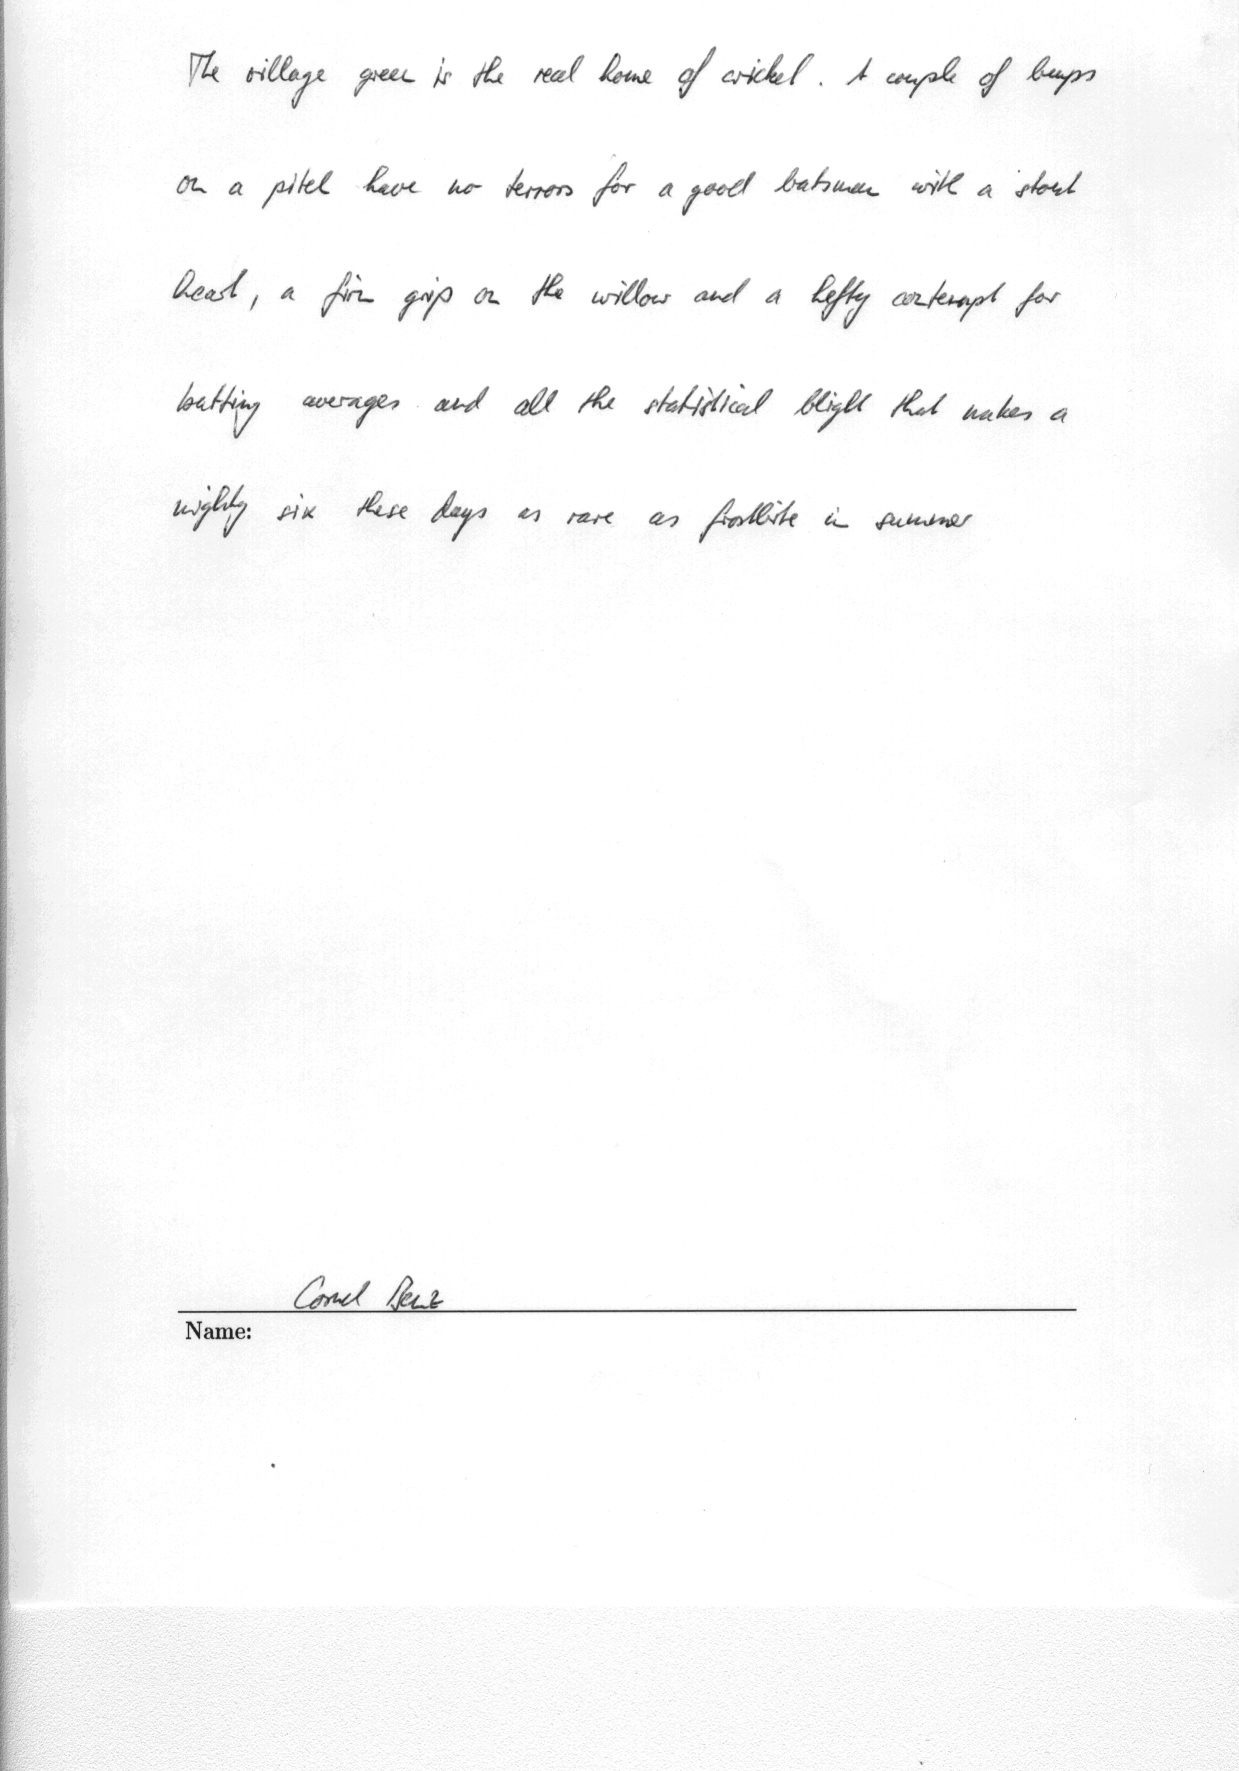 The village green is the real home of cricket. A couple of bumps
on a pitch have no terrors for a good batsman with a stout
heart, a firm grip on the willow and a hefty contempt for
batting averages and all the statistical blight that makes a
mighty six these days as rare as frostbite in summer
Cornel Benz
Name: